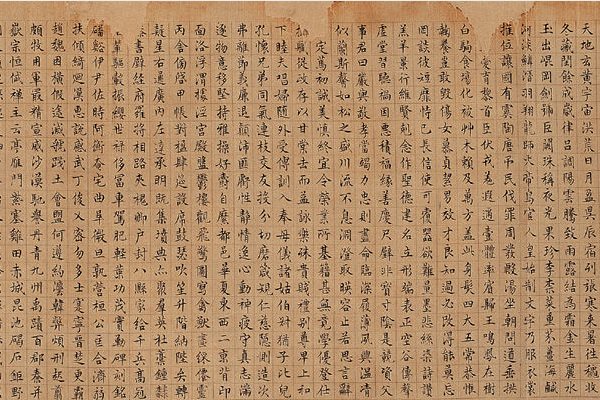 天地玄黃宇宙洪荒日月盈昃辰宿列張寒來暑往秋收
冬藏閏餘成歲律呂調陽雲騰致雨露結為霜金生麗水
玉出崐岡劒號巨闕珠稱夜光果珍李柰菜重芥薑海鹹
河淡鱗潛羽翔龍師火帝鳥官人皇始制文字乃服衣裳
推位讓國有虞陶唐弔民伐罪周發殷湯坐朝問道垂拱
愛育黎首臣伏戎羌遐邇壹體率賓歸王鳴鳳在樹
白駒食場化被草木賴及萬方蓋此身髮四大五常恭惟
鞠養豈敢毀傷女慕貞絜男效才良知過必改得能莫忘
罔談彼短靡恃己長信使可覆器欲難量墨悲絲染詩讚
羔羊景行維賢剋念作聖德建名立形端表正空谷傳聲
虛堂習聽禍因惡積福緣善慶尺璧非寶寸陰是競資父
事君曰嚴與敬孝當竭力忠則盡命臨深履薄夙興溫清
似蘭斯馨如松之盛川流不息淵澄取映容止若思言辭
定篤初誠美慎終宜令榮業所基籍甚無竟學優登仕
職從政存以甘棠去而益詠樂殊貴賤禮別尊卑上和
下睦夫唱婦隨外受傅訓入奉母儀諸姑伯叔猶子比兒
孔懷兄弟同氣連枝交友投分切磨箴規仁慈隱惻造次
弗離節義廉退顛沛匪虧性靜情逸心動神疲守真志滿
逐物意移堅持雅操好爵自縻都邑華夏東西二京背邙
面洛浮渭據涇宮殿盤鬱樓觀飛驚圖寫禽獸畫綵仙靈
丙舍傍啓甲帳對楹肆筵設席鼓瑟吹笙升階納陛弁轉
疑星右通廣內左達承明既集墳典亦聚群英杜稾鍾隸
書壁經府羅將相路俠槐卿戶封八縣家給千兵高冠
輦驅轂振纓世祿侈富車駕肥輕策功茂實勒碑刻銘
磻谿伊尹佐時阿衡奄宅曲阜微旦孰營桓公匡合濟弱
扶傾綺迴漢惠說感武丁俊乂密勿多士寔寧晉楚更霸
趙魏困橫假途滅虢踐土會盟何遵約法韓弊煩刑起翦
頗牧用軍最精宣威沙漠馳譽丹青九州禹跡百郡秦并
嶽宗恒岱禪主云亭雁門紫塞雞田赤城昆池碣石鉅野